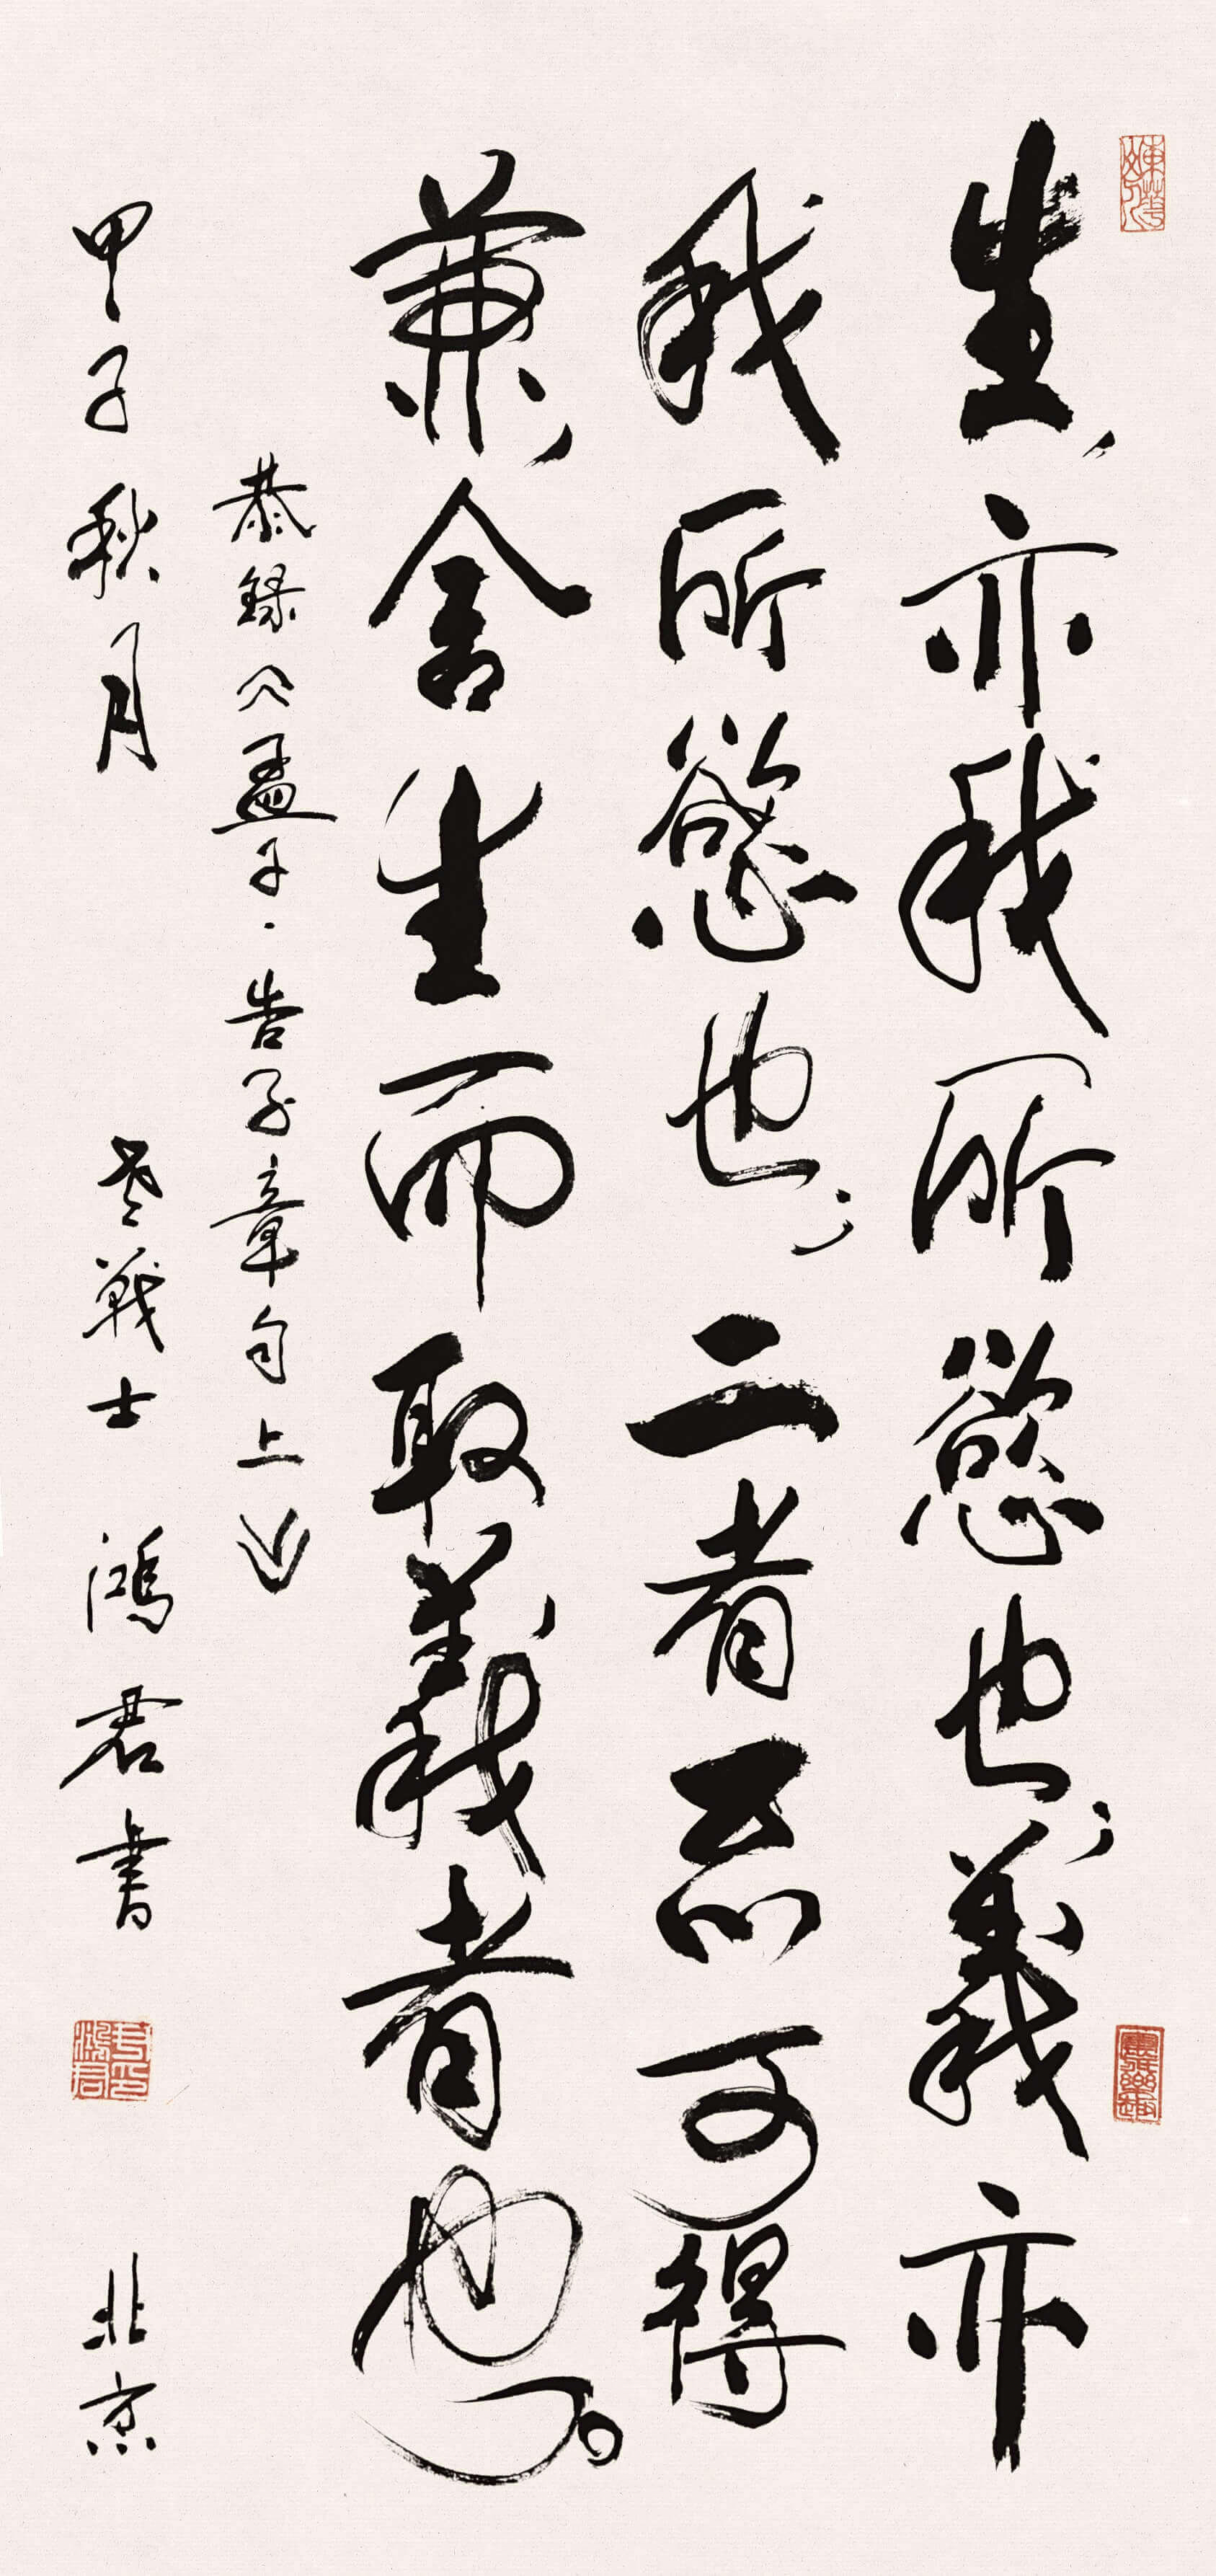 生，亦我所慾也；義亦
我所慾也；二者不可得
兼，舍生而取義者也。
恭錄《孟子·告子章句上》
甲子秋月 老戰士 鴻君書 北京